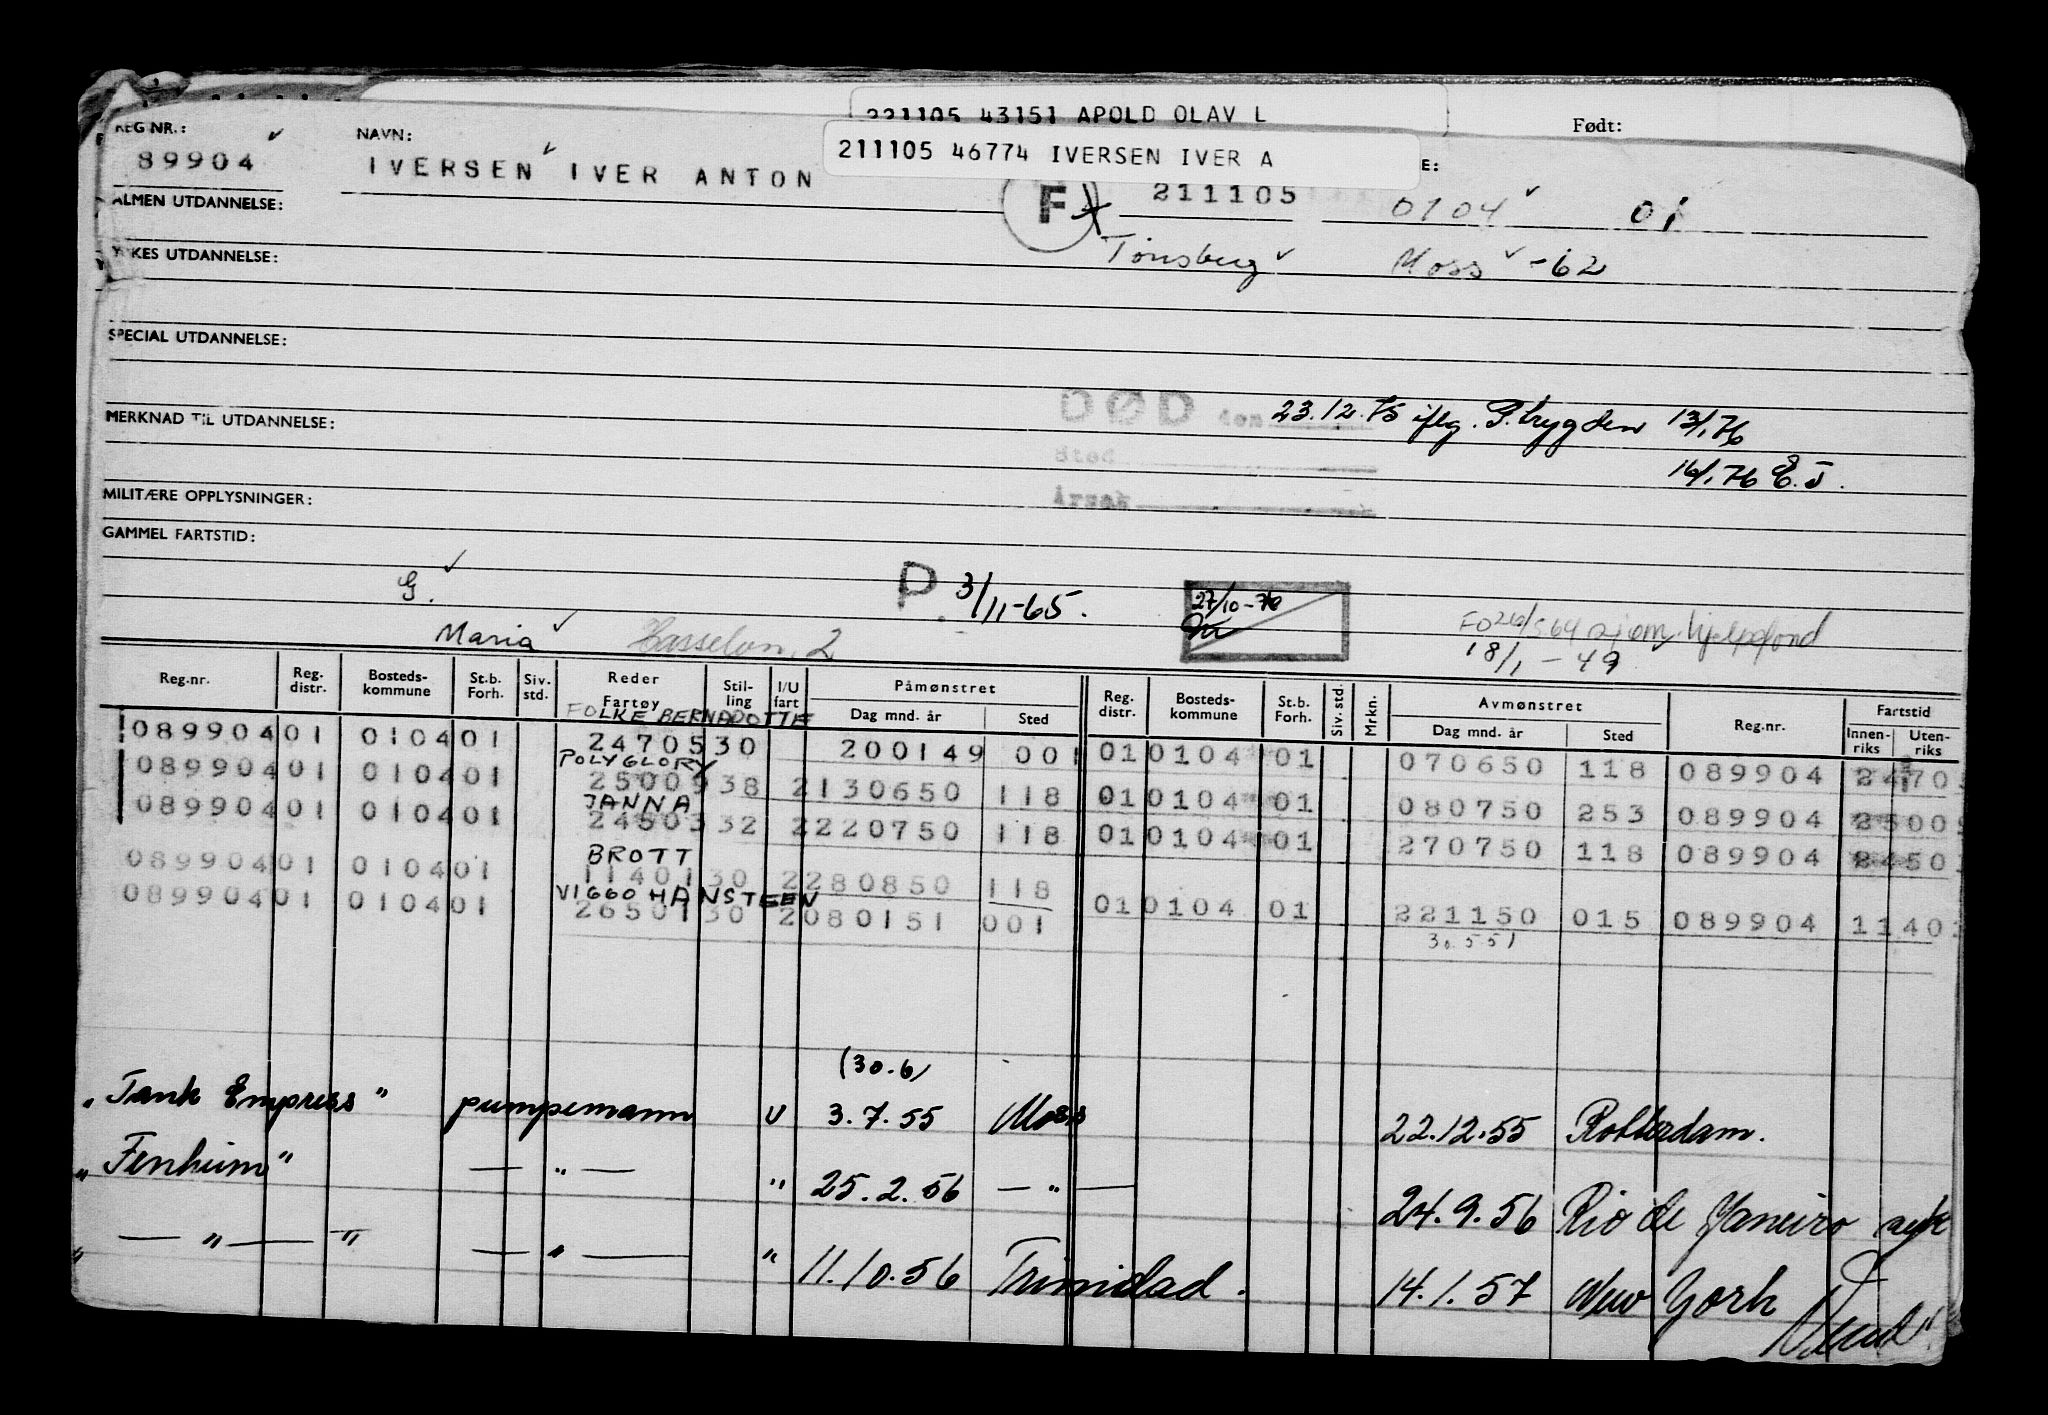 221105 43151 APOLD OLAV L
Født:
REG NR.: NAVN: 211105 46774 IVERSEN IVER A E:
89904 IVERSEN IVER ANTON
F 211105 0104 01
ALMEN UTDANNELSE:
Tønsberg Moss -62
YRKES UTDANNELSE:
SPECIAL UTDANNELSE:
DØD den 23.12.75 iflg. P.trygden 13/1 76
MERKNAD TIL UTDANNELSE:
Sted
16/1 76 E.J.
MILITÆRE OPPLYSNINGER:
Årsak
GAMMEL FARTSTID:
G. P 3/11-65. 27/10-76
Maria 2 18/1-49
Reg.nr. Reg. distr. Bosteds- kommune St.b. Forh. Siv. std. Reder Fartøy Stil- ling I/U fart Påmønstret Dag mnd. år Sted Reg. distr. Bosteds- kommune St.b. Forh. Siv. std. Mrkn. Avmønstret Dag mnd. år Sted Reg.nr. Fartstid Innen- riks Uten- riks
FOLKE BERNADOTTE
089904 01 0104 01 24705 30 200149 001 01 0104 01 070650 118 089904 24705
POLYGLORY
089904 01 0104 01 25009 38 2 130650 118 01 0104 01 080750 253 089904 25009
JANNA
089904 01 0104 01 24503 32 2 220750 118 01 0104 01 270750 118 089904 24503
BROTT
089904 01 0104 01 11401 30 2 280850 118 01 0104 01 221150 015 089904 11401
VIGGO HANSTEEN
089904 01 0104 01 26501 30 2 080151 001 30.5 51
(30.6)
"Tank Empress" pumpemann U 3.7.55 Moss 22.12.55 Rotterdam.
"Fenheim" — " — " 25.2.56 — " — 24.9.56 Rio de Janeiro syk
" — " — " — " — " 11.10.56 Trinidad. 14.1.57 New York